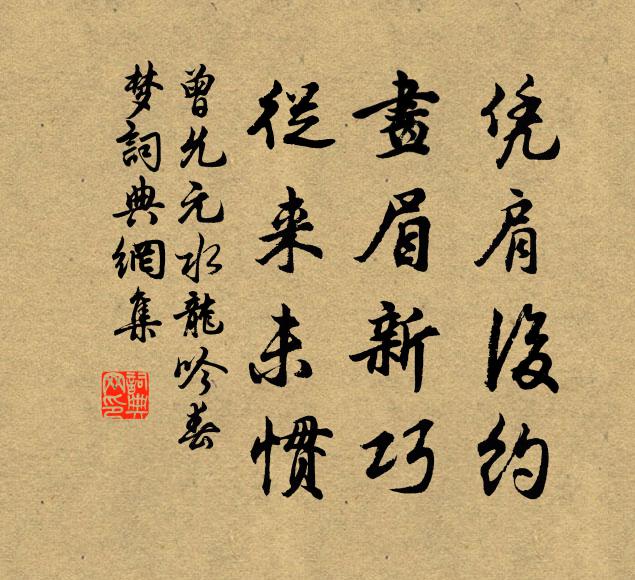 凭肩後约
畫眉新巧
從来未慣
曾允元水龍吟春
梦詞典網集
詞典
网印